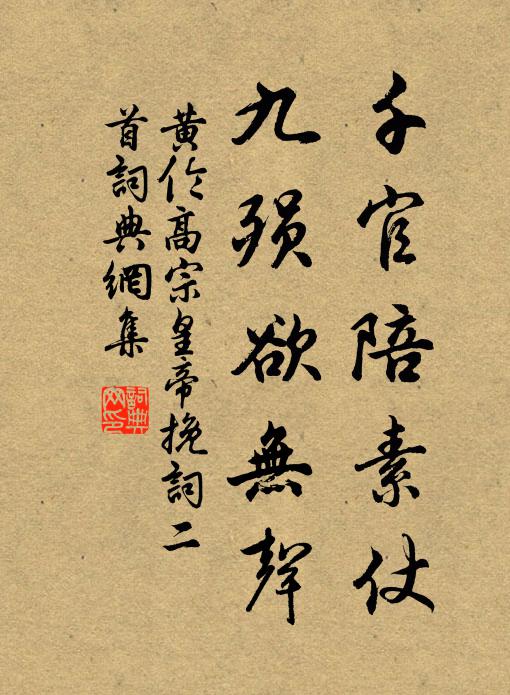 千官陪素仗
九殞欲無聲
黃伦高宗皇帝挽詞二
首詞典網集
詞典
网印